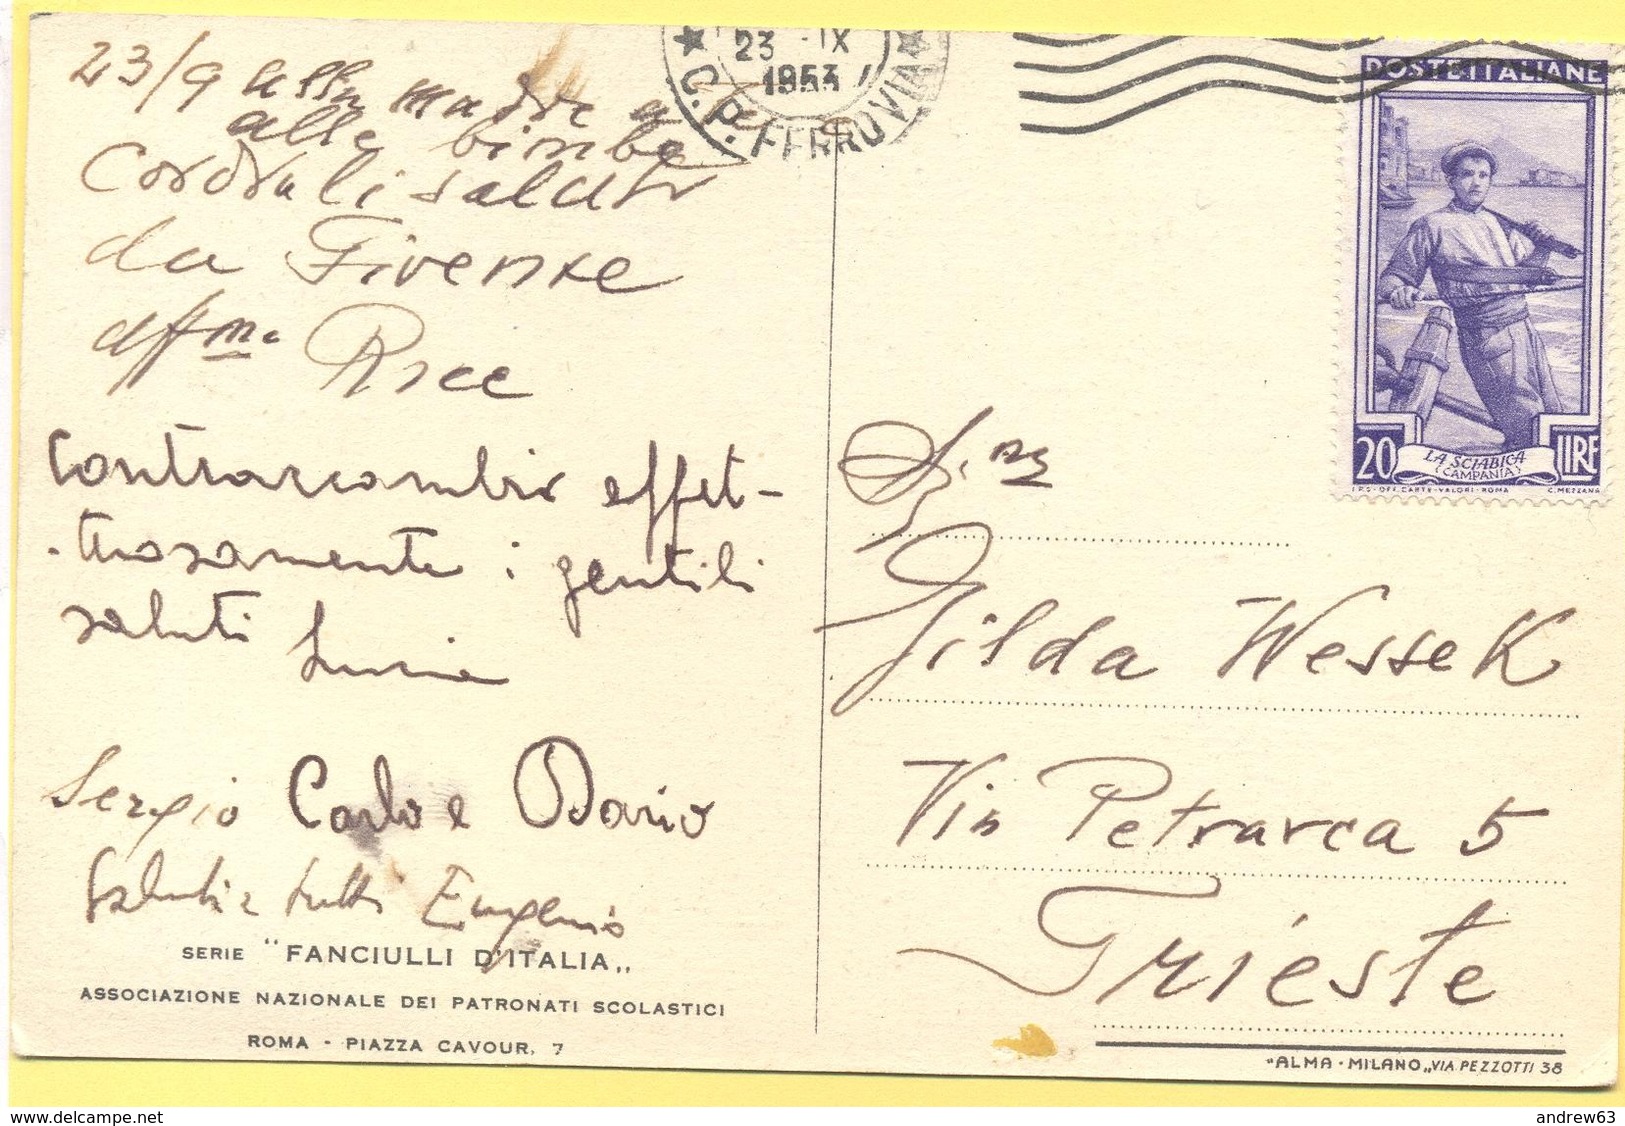 23/9 alla madre e
alle bimbe
Cordiali saluti
da Firenze
aff.ma
Contraccambio effet-
tuosamente i gentili
saluti Lucia
Sergio Carlo e Dario
Saluti a tutti Eugenio
SERIE "FANCIULLI D'ITALIA„
ASSOCIAZIONE NAZIONALE DEI PATRONATI SCOLASTICI
ROMA - PIAZZA CAVOUR, 7
23 - IX
1953
C.P. FERROVIA
POSTE ITALIANE
20 LIRE
LA SCIABICA
(CAMPANIA)
I.P.S.-OFF. CARTE-VALORI-ROMA C. MEZZANA
Gilda Wessek
Via Petrarca 5
Trieste
"ALMA - MILANO„ VIA PEZZOTTI 38
andrew63